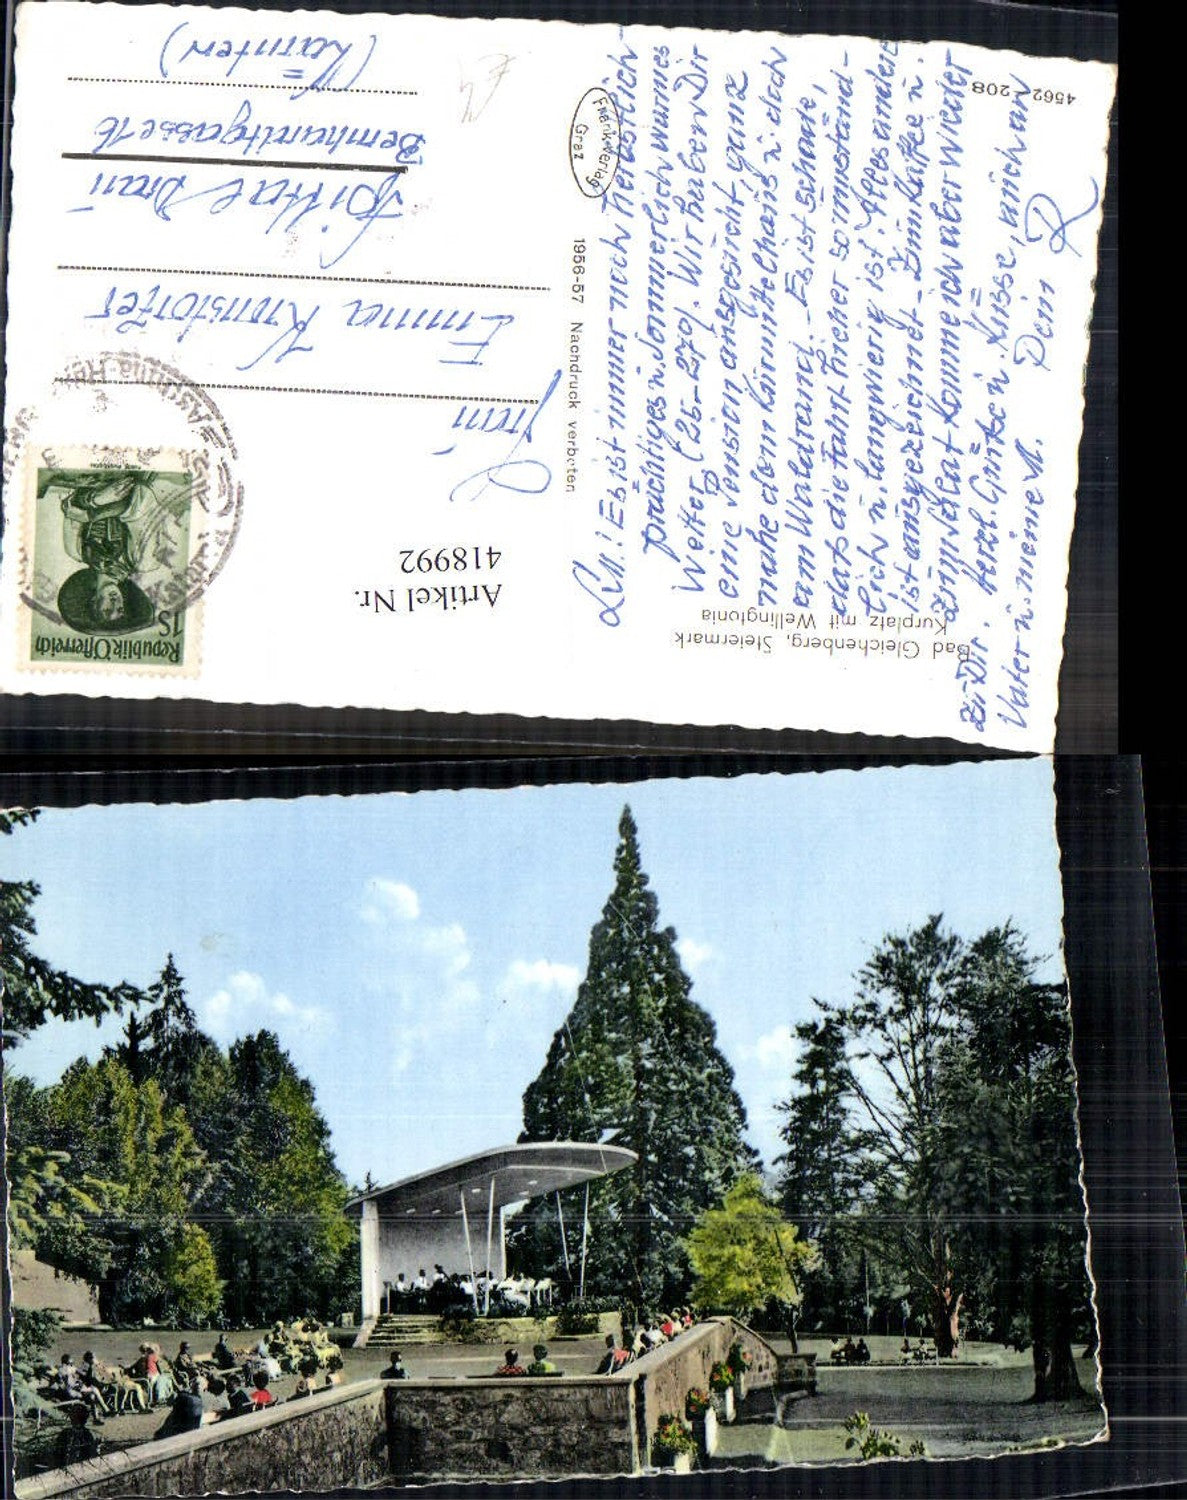 Bad Gleichenberg, Steiermark
Kurplatz mit Wellingtonia
Artikel Nr.
418992
Republik Österreich
1S
1956-57 Nachdruck verboten
Frank-Verlag
Graz
4562 208
Frau
Emma Kronstorfer
Spittal Drau
Bernhardtgasse 16
(Kärnten)
L. M.! Es ist immer noch herbstlich-
prächtiges u. sommerlich warmes
Wetter (26-27°). Wir haben Dir
eine Pension ausgesucht, ganz
nahe dem Kurmittelhaus u. doch
am Waldrand. - Es ist schade,
daß die Fahrt hieher so umständ-
lich u. langwierig ist. Alles andere
ist ausgezeichnet - Zum Kaffee u.
zum Schlaf komme ich aber wieder
zu Dir. Herzl. Grüße u. Küsse, auch an
Vater u. meine M.
Dein R